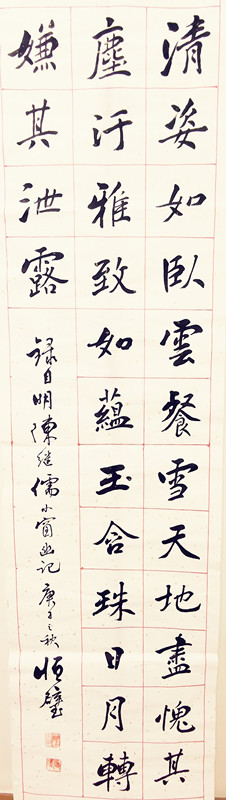 清姿如臥雲餐雪天地盡愧其
塵汙雅致如蘊玉含珠日月轉
嫌其泄露
録自明陳继儒小窗幽记庚子之秋恒璧